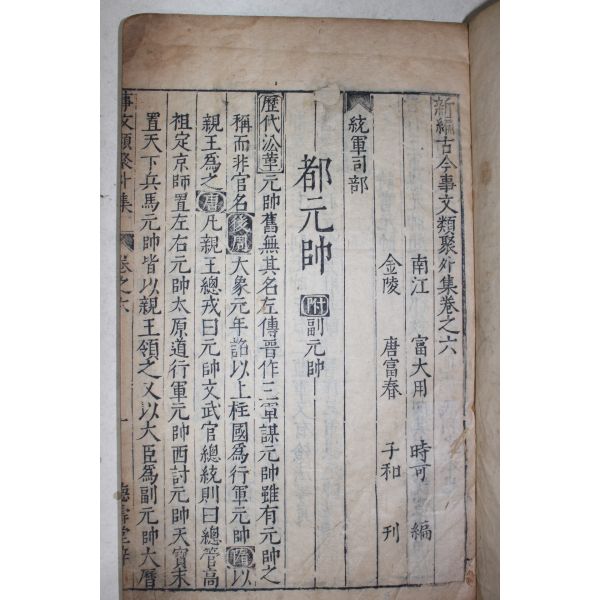 新編古今事文類聚外集卷之六
南江 富大用 時可 編
金陵 唐富春 子和 刊
統軍司部
都元帥 附副元帥
歷代沿革元帥舊無其名左傳晉作三軍謀元帥雖有元帥之
稱而非官名後周大象元年詔以上柱國為行軍元帥隋以
親王為之唐凡親王總戎曰元帥文武官總統則曰總管高
祖定京師置左右元帥太原道行軍元帥西討元帥天寶末
置天下兵馬元帥皆以親王領之又以大臣為副元帥大曆
事文類聚外集 卷之六 一 德壽堂